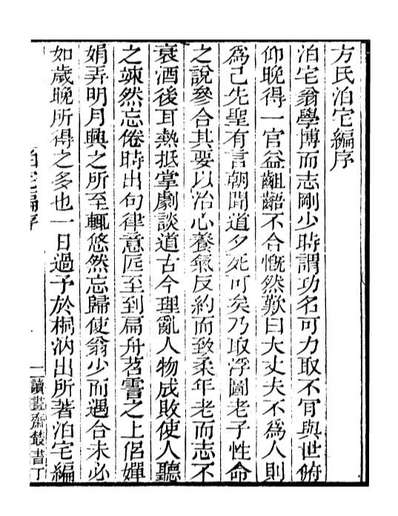 方氏泊宅編序
泊宅翁學博而志剛少時謂功名可力取不肯與世俯
仰晚得一官益齟齬不合慨然歎曰大丈夫不為人則
為己先聖有言朝聞道夕死可矣乃取浮圖老子性命
之說參合其要以治心養氣反約而致柔年老而志不
衰酒後耳熱抵掌劇談道古今理亂人物成敗使人聽
之竦然忘倦時出句律意匠至到扁舟苕霅之上侶嬋
娟弄明月興之所至輒悠然忘歸使翁少而遇合未必
如歲晚所得之多也一日過予於桐汭出所著泊宅編
泊宅編序
一
讀畫齋叢書丁